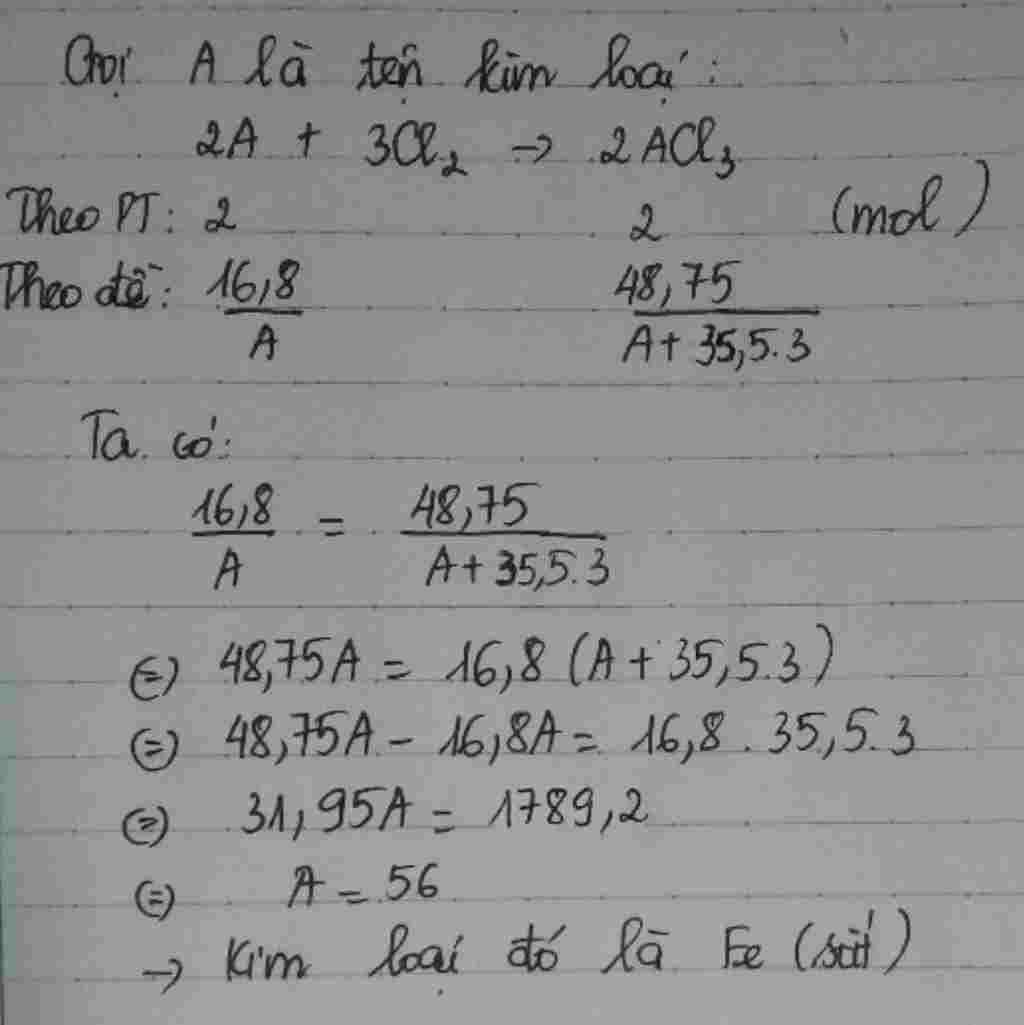 Gọi A là tên kim loại:
2A + 3Cl₂ → 2ACl₃
Theo PT: 2 2 (mol)
Theo đề: 16,8/A 48,75/(A + 35,5.3)
Ta có:
16,8/A = 48,75/(A + 35,5.3)
(=) 48,75A = 16,8 (A + 35,5.3)
(=) 48,75A - 16,8A = 16,8 . 35,5.3
(=) 31,95A = 1789,2
(=) A = 56
→ Kim loại đó là Fe (sắt)